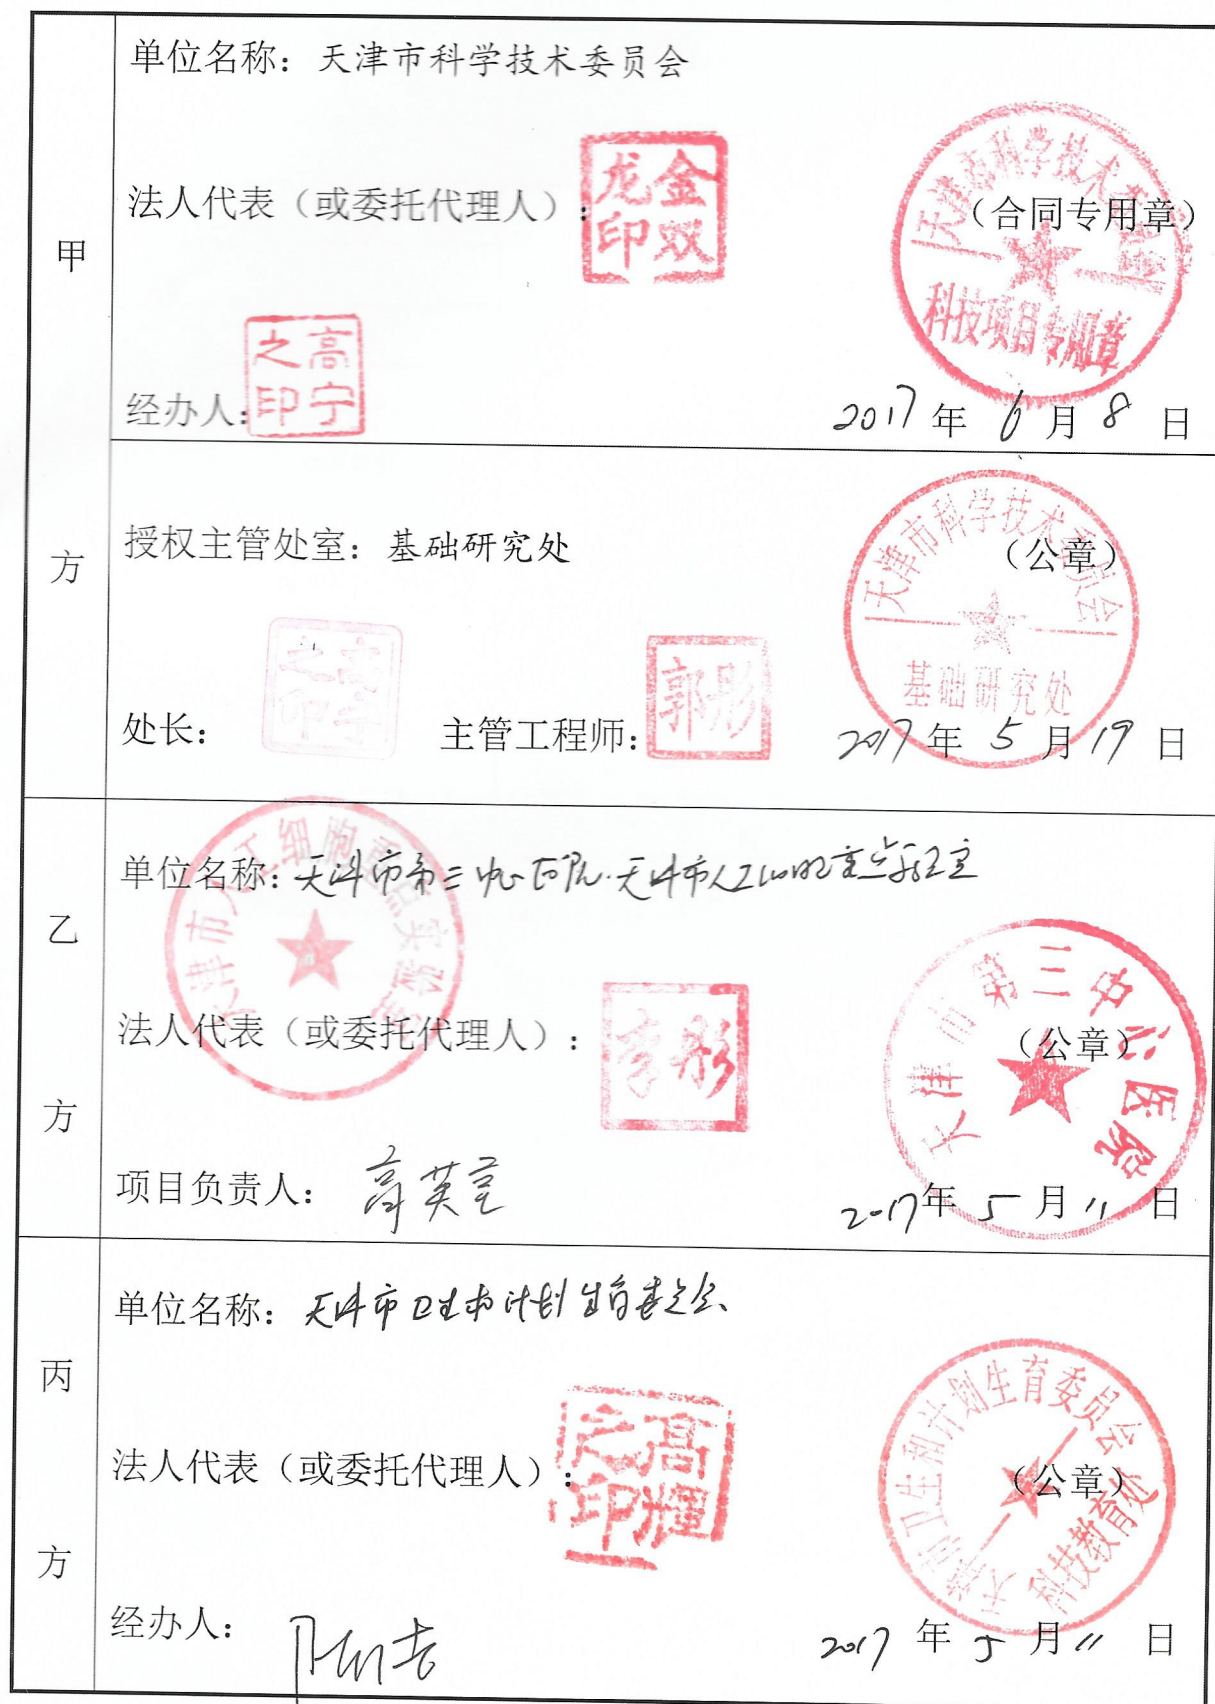 甲方
单位名称：天津市科学技术委员会
法人代表（或委托代理人）：
金双龙印
（合同专用章）
天津市科学技术委员会
科技项目专用章
经办人：
高宁之印
2017年6月8日
授权主管处室：基础研究处
（公章）
天津市科学技术委员会
基础研究处
处长：
高宁之印
主管工程师：
郭彤
2017年5月19日
乙方
单位名称：天津市第三中心医院.天津市人工细胞重点实验室
天津市人工细胞重点实验室
法人代表（或委托代理人）：
李彤
（公章）
天津市第三中心医院
项目负责人：高英堂
2017年5月11日
丙方
单位名称：天津市卫生和计划生育委员会
法人代表（或委托代理人）：
高辉之印
（公章）
天津市卫生和计划生育委员会
科技教育处
经办人：
2017年5月11日